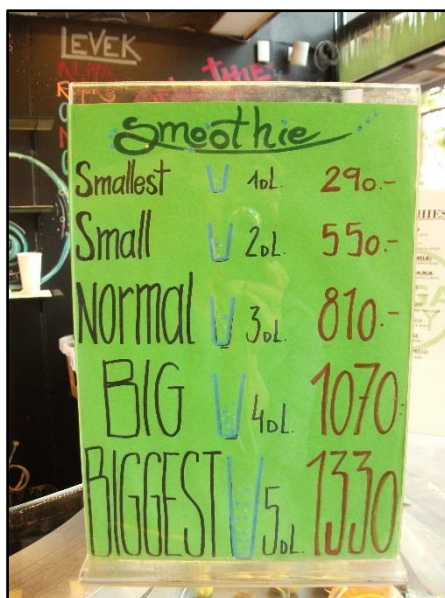 LEVEK
ALMA
THIE
Smoothie
Smallest 1DL. 290.-
Small 2DL. 550.-
NORMAL 3DL. 810.-
BIG 4DL. 1070.-
BIGGEST 5DL. 1330
HIES